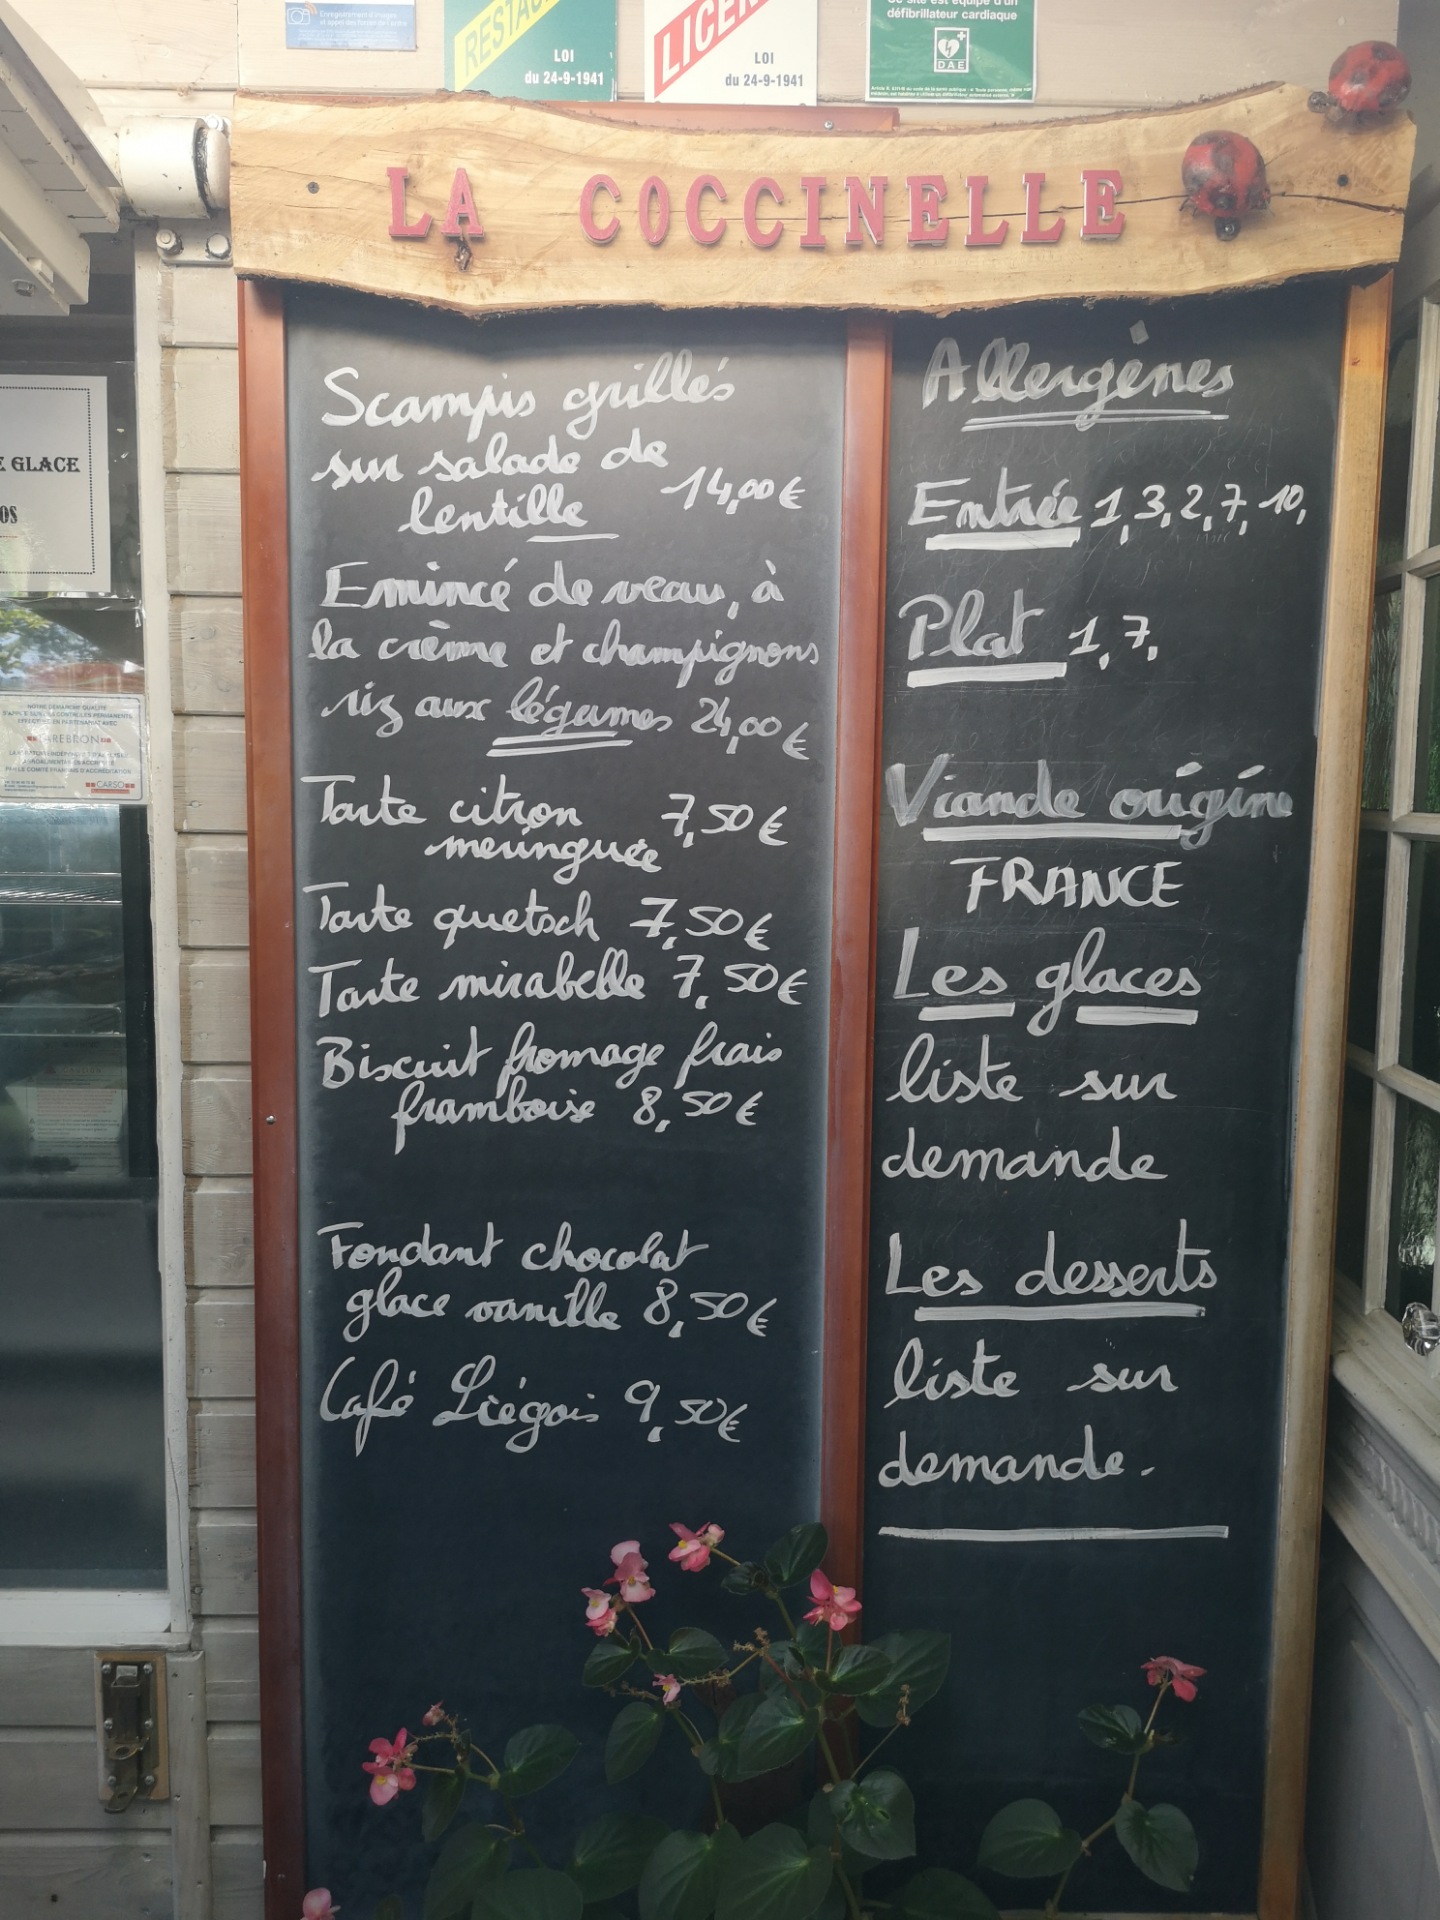 Enregistrement d'images
RESTAU
LOI
du 24-9-1941
LICEN
LOI
du 24-9-1941
Ce site est équipé d'un
défibrillateur cardiaque
DAE
LA COCCINELLE
E GLACE
OS
CARSO
Scampis grillés
sur salade de
lentille 14,00€
Emincé de veau, à
la crème et champignons
riz aux légumes 24,00€
Tarte citron 7,50€
meringuée
Tarte quetsch 7,50€
Tarte mirabelle 7,50€
Biscuit fromage frais
framboise 8,50€
Fondant chocolat
glace vanille 8,50€
Café Liégois 9,50€
Allergènes
Entrée 1, 3, 2, 7, 10,
Plat 1, 7,
Viande origine
FRANCE
Les glaces
liste sur
demande
Les desserts
liste sur
demande.